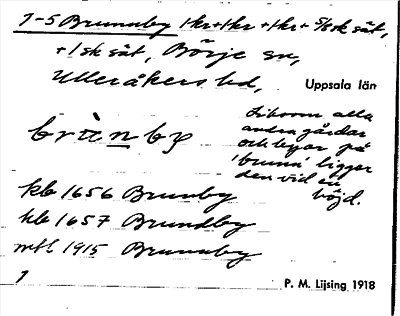 1-5 Brunnby 1kr+1kr+1kr+5/8sk sät,
+1sk sät, Börje sn,
Ulleråkers hd,
Uppsala län
brùnby
Liksom alla
andra gårdar
och byar på
'brunn' ligger
den vid en
höjd.
kb 1656 Brunby
kb 1657 Brundby
mtl 1915 Brunnby
1
P. M. Lijsing 1918